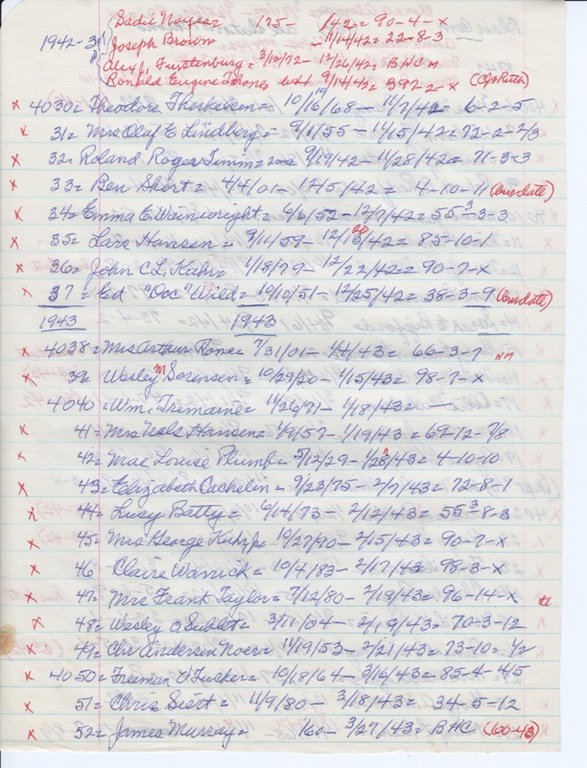 Sadie Noyes 175- /42= 90-4-x
1942-3 Joseph Brown - 11/14/42= 22-8-3
Alex J. Furstenburg= 3/13/72- 12/26/42= BHC M
Ronald Eugene Jones 9/14/42= 392-x
x 4030= Theodore Therkelsen= 10/16/68- 11/7/42= 6-2-5
x 31= Mrs Olaf E Lindberg= 9/11/55- 11/15/42= 72-2-2/3
x 32= Roland Roger Timm= 9/19/42- 11/28/42= 71-3-3
x 33= Ben Short= 4/4/01- 12/5/42= 4-10-11 (Ousdate)
x 34= Emma E Wainwright= 6/6/52- 12/7/42= 55-3-3
x 35= Lars Hansen= 9/11/59- 12/18/42= 85-10-1
x 36= John C.L. Kuhr= 1/18/79- 12/22/42= 90-7-x
x 37= Ed "Doc" Wild= 10/10/51- 12/25/42= 38-3-9 (Ousdate)
1943 1943
x 4038= Mrs Arthur Rone= 7/31/01- 1/4/43= 66-3-7 NM
x 39= Wesley M Sorensen= 10/29/20- 1/15/43= 98-7-x
x 4040= Wm. Tremaine= 11/26/71- 1/18/43= —
x 41= Mrs Neals Hansen= 1/9/57- 1/19/43= 69-12-7/8
x 42= Mae Louise Plumb= 5/12/29- 1/28/43= 4-10-10
x 43= Elizabeth Cachelin= 9/23/75- 2/7/43= 72-8-1
x 44= Lucy Batty= 6/14/73- 2/12/43= 55-8-3
x 45= Mrs George Kuhr Jr 10/27/90- 2/15/43= 90-7-x
x 46 Claire Warrick= 10/4/83- 2/17/43= 98-3-x
x 47= Mrs Frank Taylor= 7/12/80- 2/19/43= 96-14-x
x 48= Wesley O Sublet= 3/11/04- 2/19/43= 70-3-12
x 49= Chr Andersen Noer= 11/19/53- 2/21/43= 73-10= 1/2
x 4050= Freeman O Tucker= 10/18/64- 3/16/43= 85-4-4/5
x 51= Chris Siert= 11/9/80- 3/18/43= 34-5-12
x 52= James Murray= 160- 3/27/43= BHC (60-43)